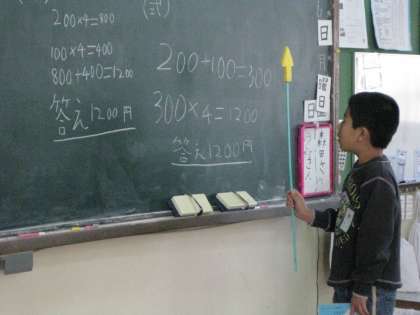 200×4=800
(式)
100×4=400
800+400=1200
答え1200円
200+100=300
300×4=1200
答え1200円
日
月
曜日
日